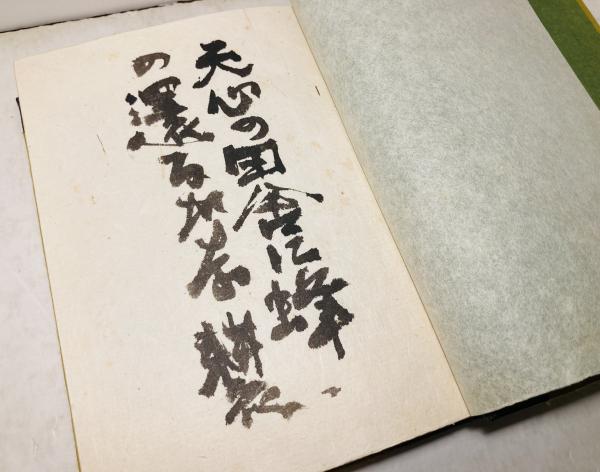 天心の田舎に蜂
の還るかな 耕衣